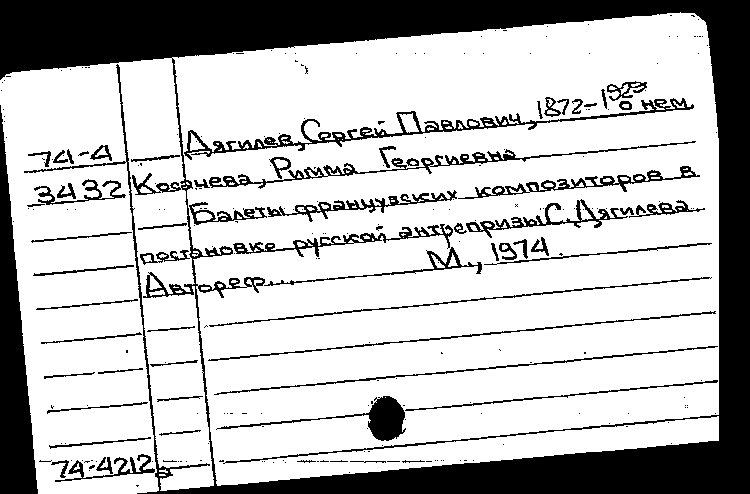 Дягилев, Сергей Павлович, 1872-1929
о нем
74-4
3432 Косачева, Римма Георгиевна.
Балеты французских композиторов в
постановке русской антрепризы С. Дягилева.
Автореф... М., 1974.
74-4212а